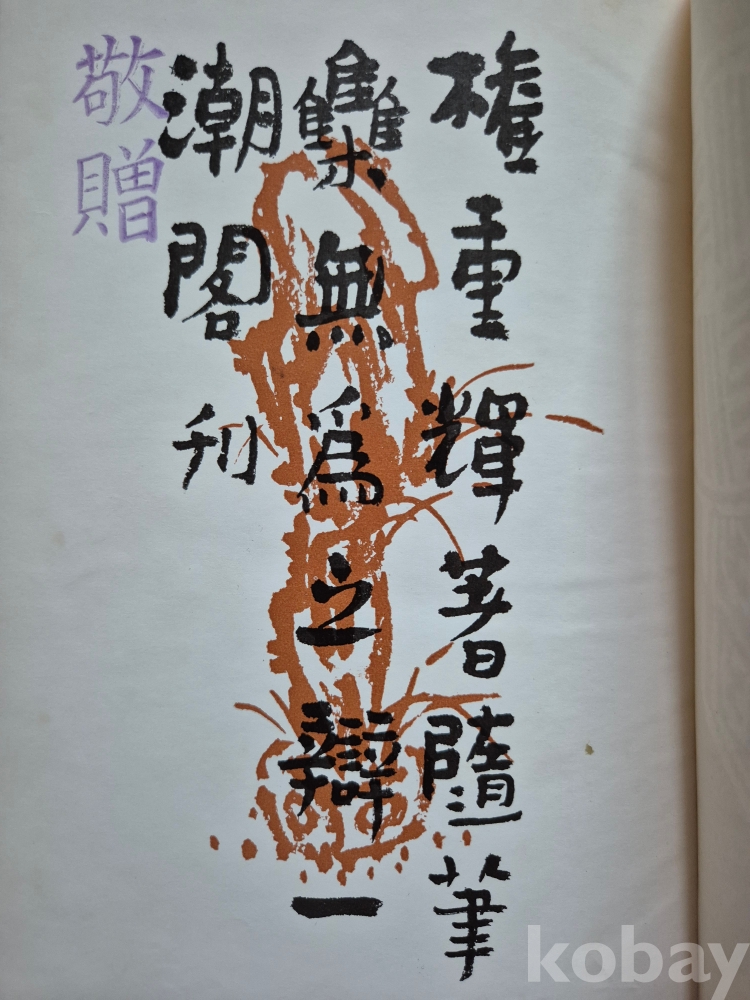 權重輝著隨筆
雧無爲之辯一
潮閣刊
敬贈
kobay